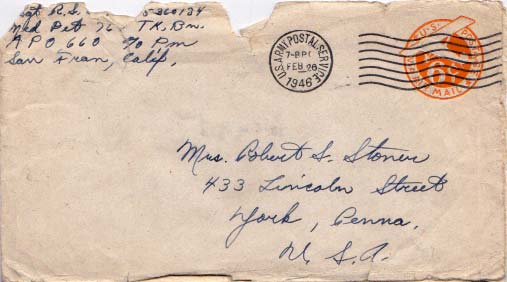 Sgt R.S.
Med Det 76 TK. Bn.
A P O 660 % P.m
San Fran, Calif.
U.S. ARMY POSTAL SERVICE
FEB 26
1946
Mrs. Robert S. Stoner
433 Lincoln Street
York, Penna.
U. S. A.